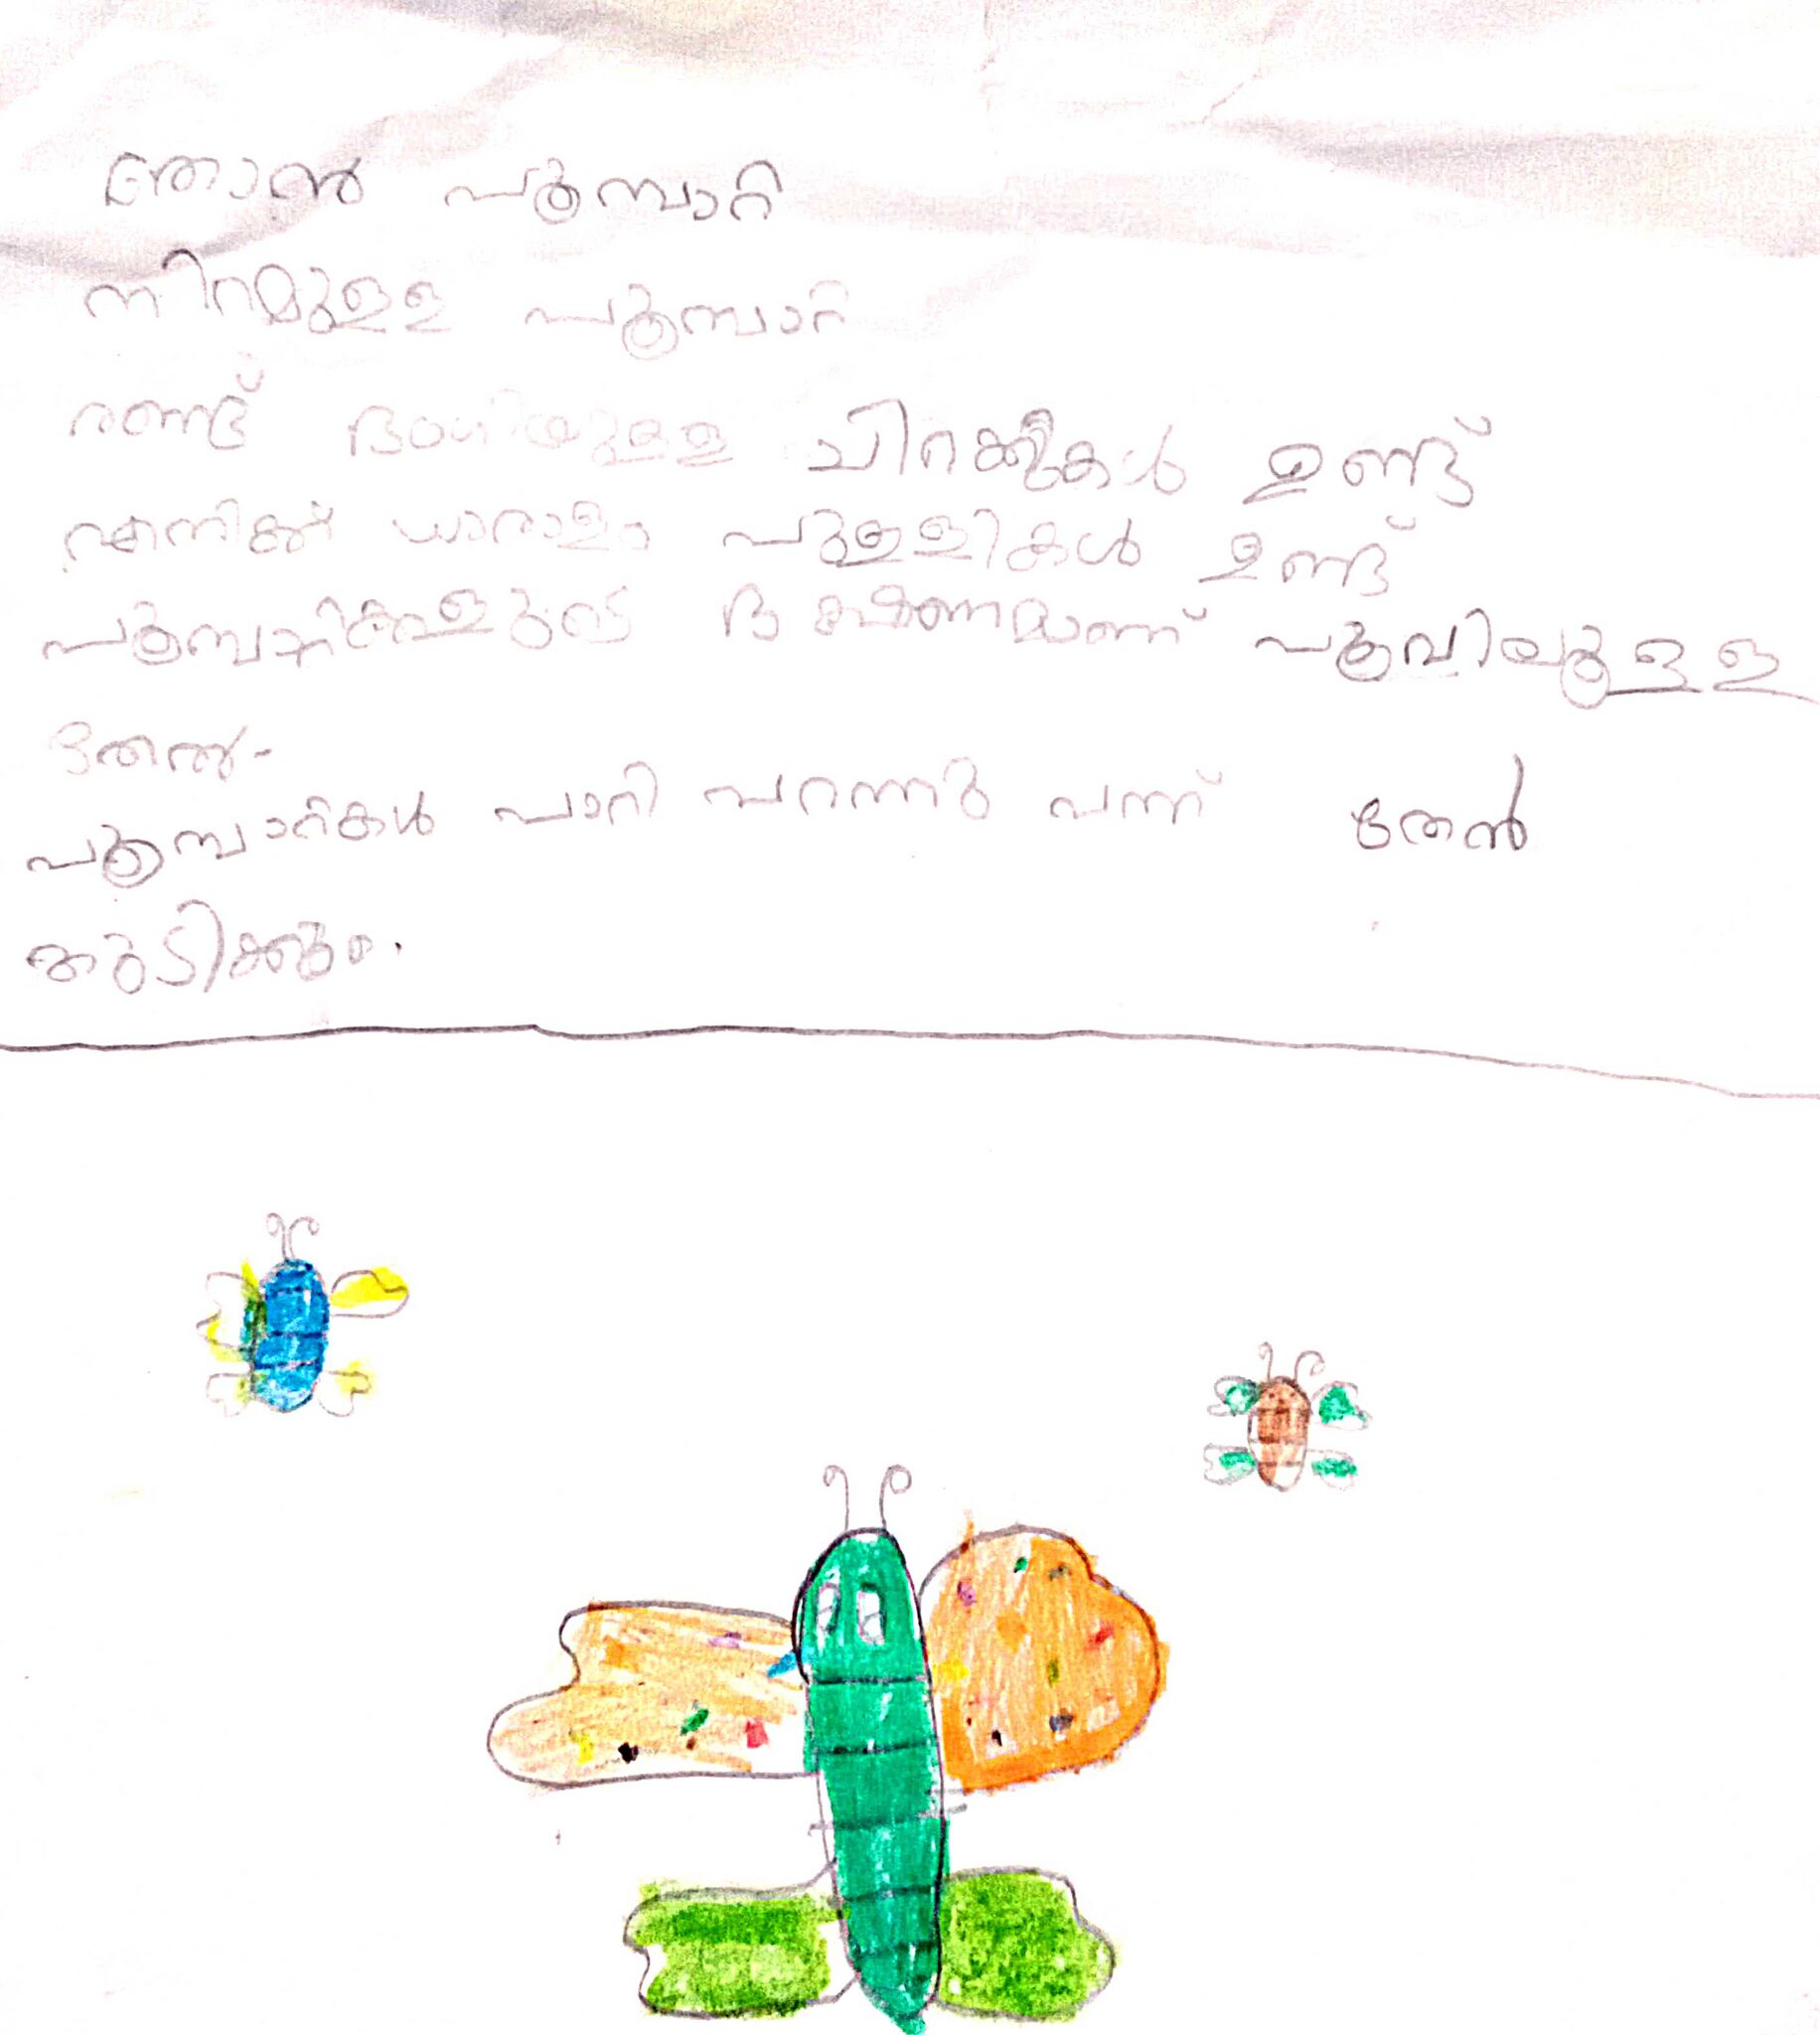 ഞാൻ പൂമ്പാറ്റ
നിറമുള്ള പൂമ്പാറ്റ
രണ്ട് ഭംഗിയുള്ള ചിറക്കുകൾ ഉണ്ട്
എനിക്ക് ധാരാളം പുള്ളികൾ ഉണ്ട്
ഭക്ഷണമാണ് പൂവിയുള്ള
തേൻ
പൂമ്പാറ്റകൾ പാറി പറന്നു പന്ന് തേൻ
കുടിക്കും.